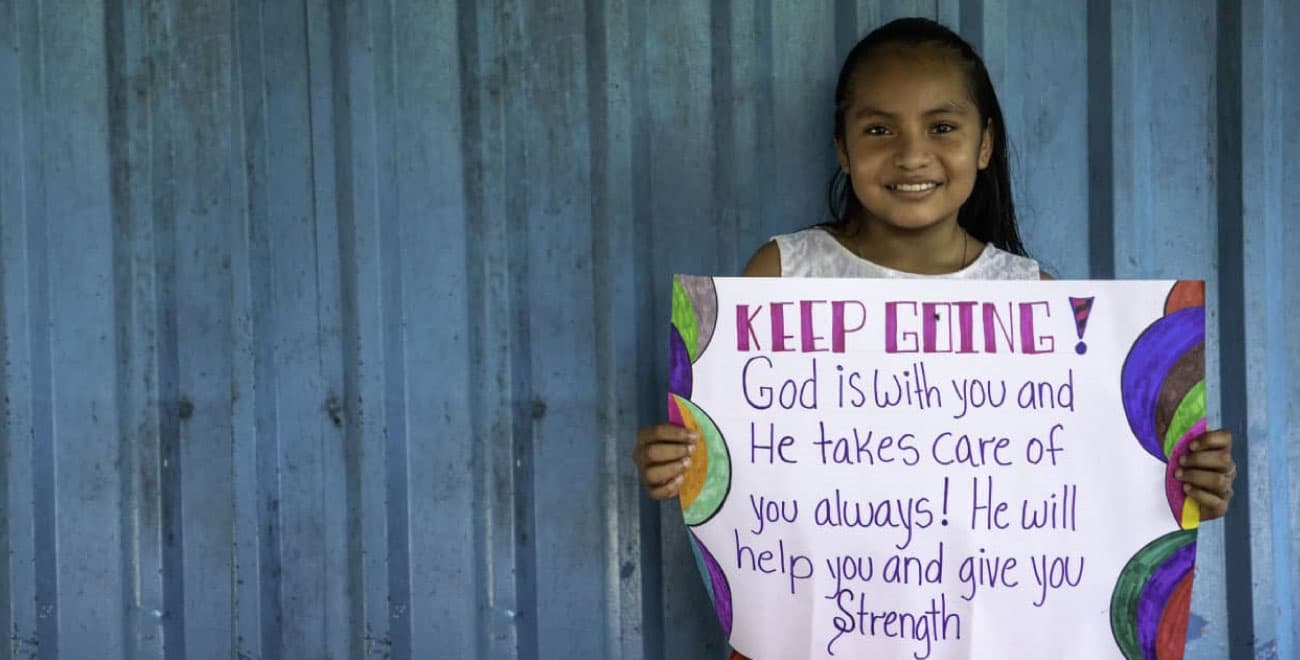 KEEP GOING!
God is with you and
He takes care of
you always! He will
help you and give you
Strength